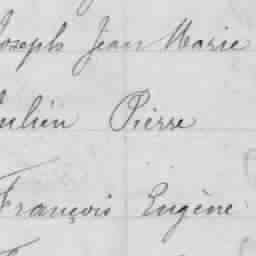 Joseph Jean Marie
Julien Pierre
François Eugène